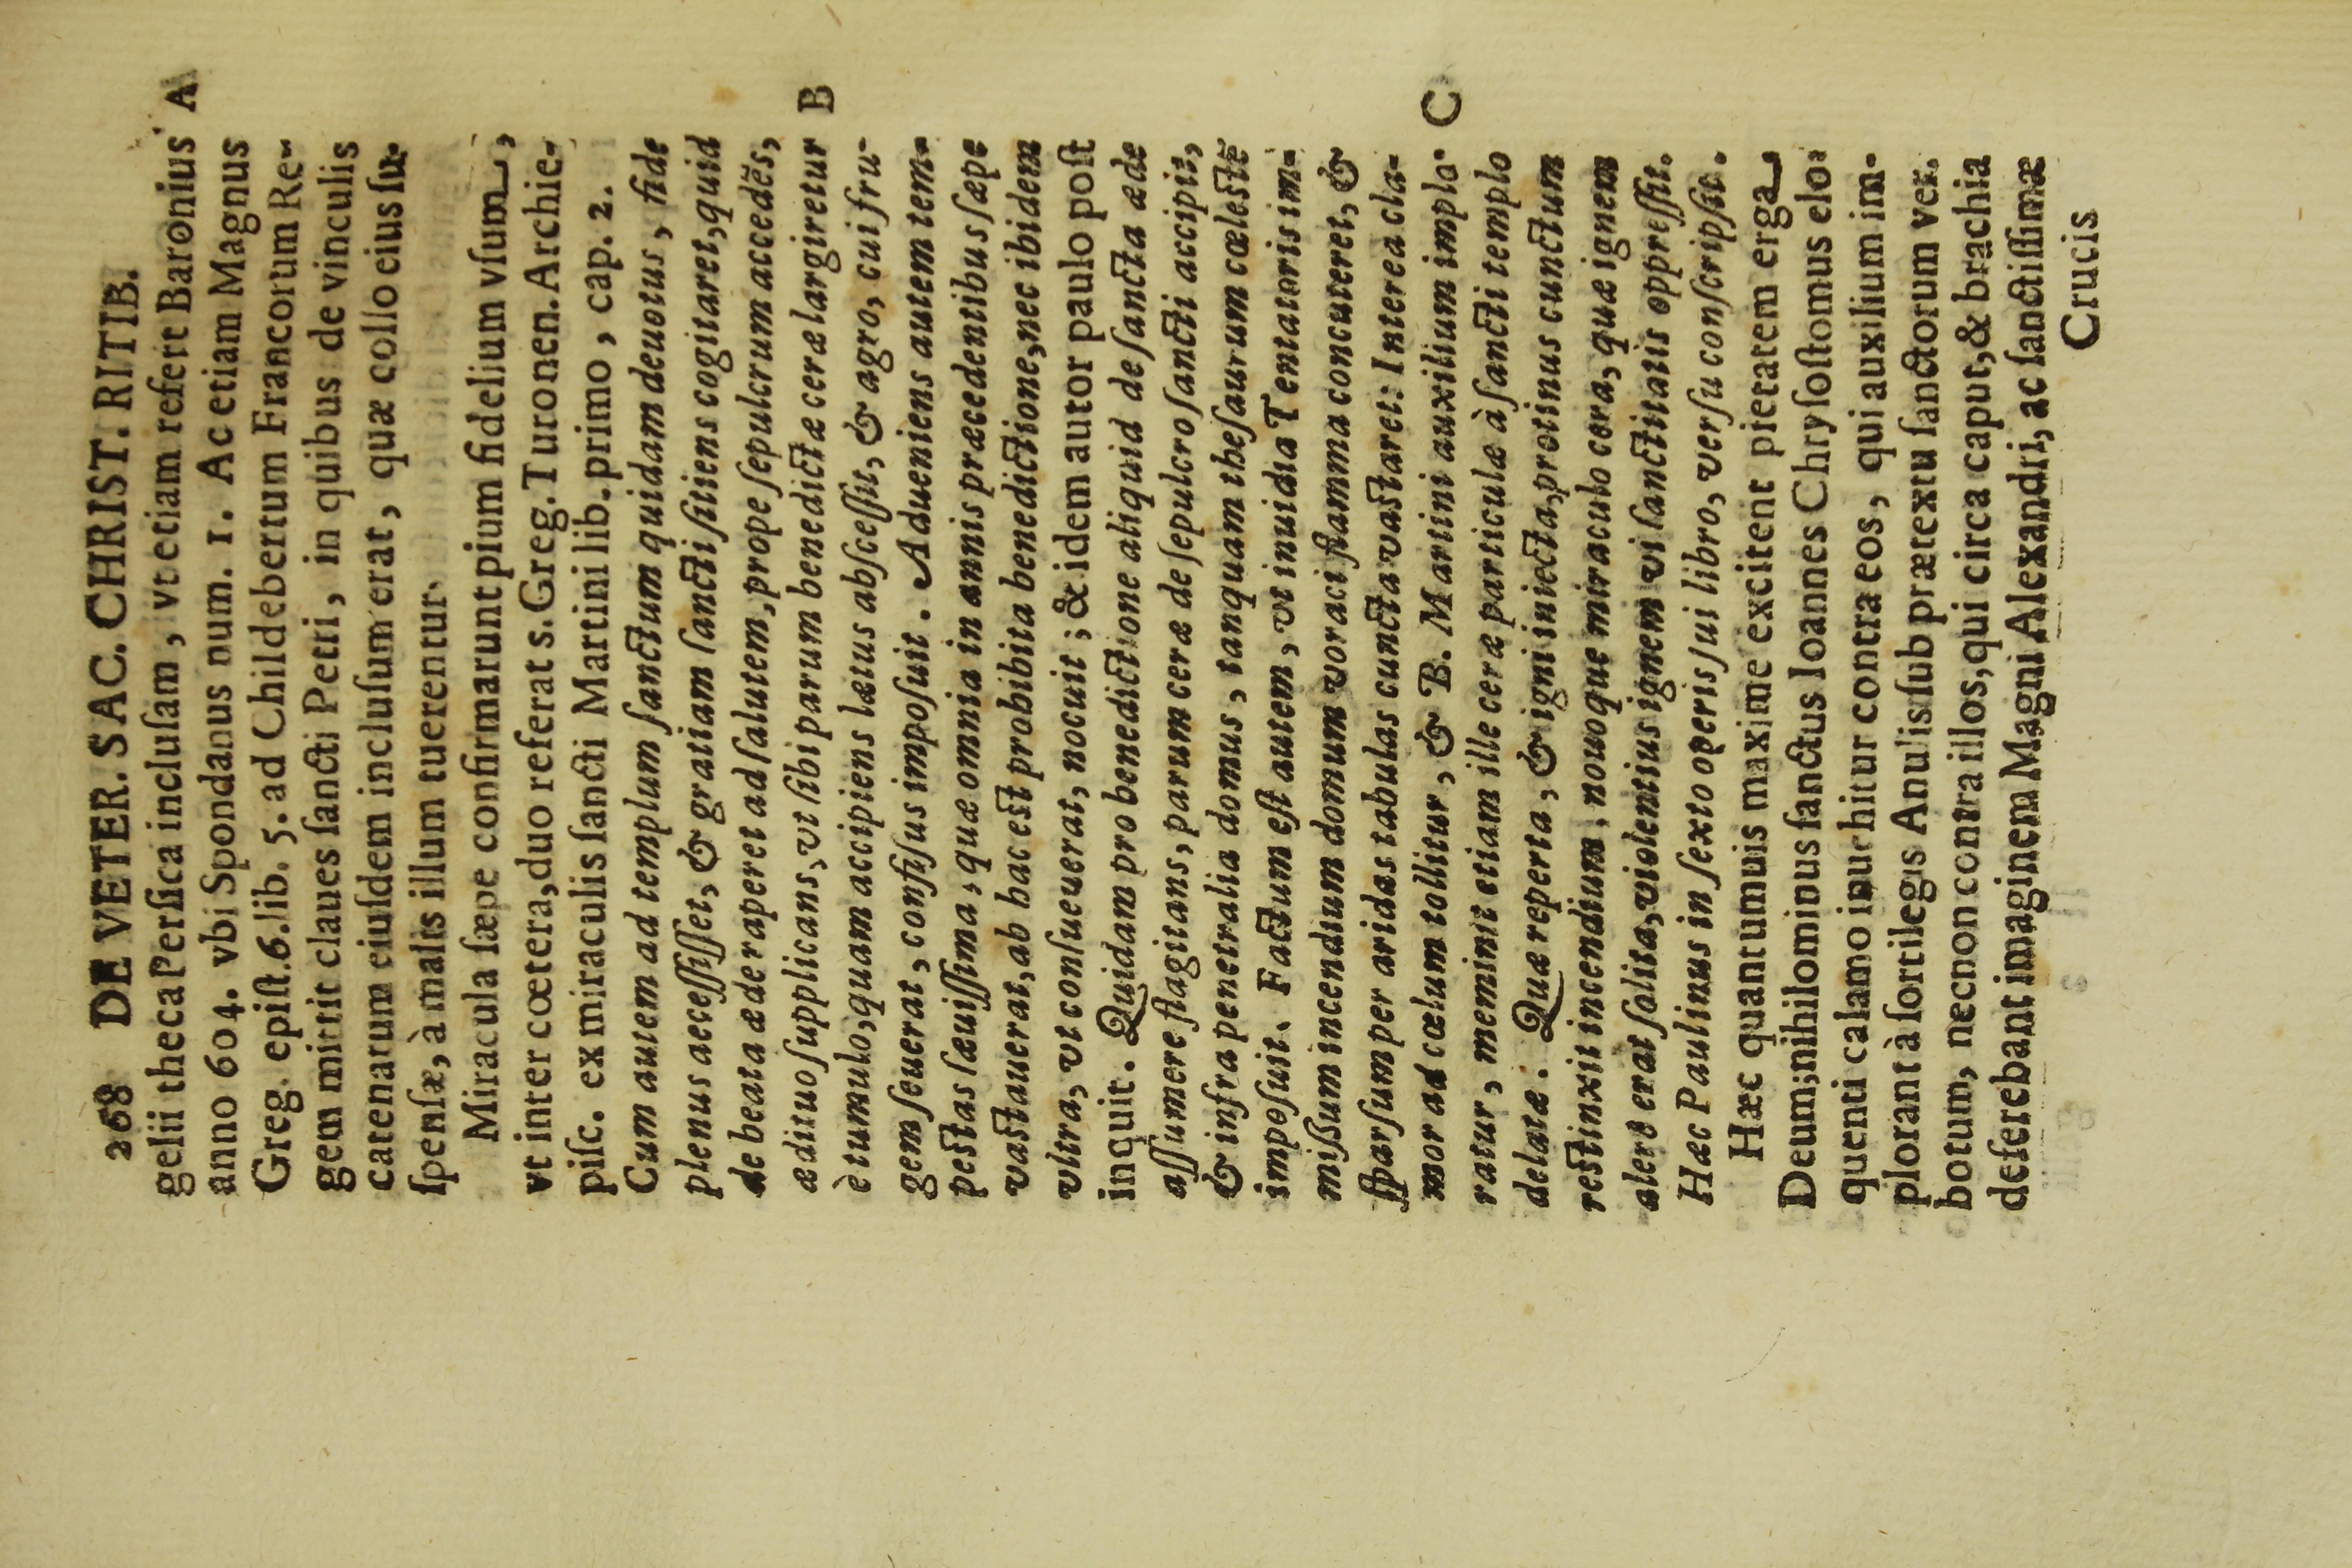 268 DE VETER. SAC. CHRIST. RITIB.
gelii theca Persica inclusam, vt etiam refert Baronius A
anno 604. vbi Spondanus num. 1. Ac etiam Magnus
Greg. epist. 6. lib. 5. ad Childebertum Francorum Re-
gem mittit claues sancti Petri, in quibus de vinculis
catenarum eiusdem inclusum erat, quæ collo eius su-
spensæ, à malis illum tuerentur.
Miracula sæpe confirmarunt pium fidelium vsum,
vt inter cœtera, duo referat s. Greg. Turonen. Archie-
pisc. ex miraculis sancti Martini lib. primo, cap. 2.
Cum autem ad templum sanctum quidam deuotus, fide
plenus accessisset, & gratiam sancti sitiens cogitaret, quid
de beata æde raperet ad salutem, prope sepulcrum accedẽs,
ædituo supplicans, vt sibi parum benedictæ ceræ largiretur B
è tumulo, quam accipiens lætus abscessit, & agro, cui fru-
gem seuerat, confisus imposuit. Adueniens autem tem-
pestas sæuissima, quæ omnia in annis præcedentibus sæpe
vastauerat, ab hac est prohibita benedictione, nec ibidem
vltra, vt consueuerat, nocuit; & idem autor paulo post
inquit. Quidam pro benedictione aliquid de sancta æde
assumere flagitans, parum ceræ de sepulcro sancti accipit,
& infra penetralia domus, tanquam thesaurum cœlestẽ
imposuit. Factum est autem, vt inuidia Tentatoris im-
mißum incendium domum voraci flamma concuteret, &
sparsum per aridas tabulas cuncta vastaret: Interea cla-
mor ad cœlum tollitur, & B. Martini auxilium implo- C
ratur, meminit etiam ille ceræ particulæ à sancti templo
delatæ. Quæ reperta, & igni iniecta, protinus cunctum
restinxit incendium, nouoque miraculo cera, quæ ignem
alere erat solita, violentius ignem vi sanctitatis oppressit.
Hæc Paulinus in sexto operis sui libro, versu conscripsit.
Hæc quantumuis maxime excitent pietatem erga
Deum; nihilominus sanctus Ioannes Chrysostomus elo-
quenti calamo inuehitur contra eos, qui auxilium im-
plorant à sortilegis Anulis sub prætextu sanctorum ver-
botum, necnon contra illos, qui circa caput, & brachia
deferebant imaginem Magni Alexandri, ac sanctissimæ
Crucis